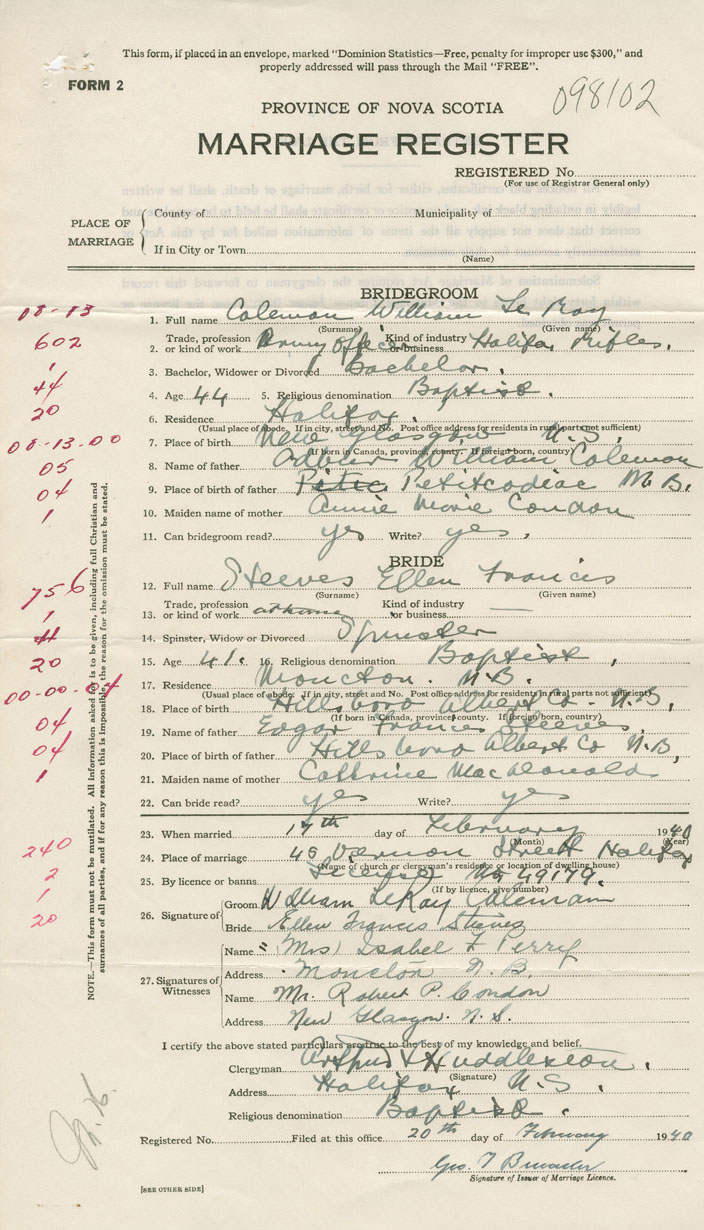 This form, if placed in an envelope, marked "Dominion Statistics—Free, penalty for improper use $300," and
properly addressed will pass through the Mail "FREE".
FORM 2
098102
PROVINCE OF NOVA SCOTIA
MARRIAGE REGISTER
REGISTERED No.
(For use of Registrar General only)
PLACE OF MARRIAGE
County of Municipality of
If in City or Town
(Name)
BRIDEGROOM
08-13
1. Full name Coleman William Le Roy
(Surname) (Given name)
602
Trade, profession Kind of industry
2. or kind of work Army Officer or business Halifax Rifles.
1
3. Bachelor, Widower or Divorced Bachelor.
44
4. Age 44 5. Religious denomination Baptist.
20
6. Residence Halifax.
(Usual place of abode. If in city, street and No. Post office address for residents in rural parts not sufficient)
08-13-00
7. Place of birth New Glasgow N.S.
(If born in Canada, province, county. If foreign born, country)
05
8. Name of father William Coleman
04
9. Place of birth of father Petitcodiac N.B.
1
10. Maiden name of mother Annie Marie Condon
11. Can bridegroom read? yes Write? yes.
BRIDE
12. Full name Steeves Ellen Francis
(Surname) (Given name)
756
Trade, profession Kind of industry
13. or kind of work at home or business —
1
14. Spinster, Widow or Divorced Spinster
20
15. Age 41. 16. Religious denomination Baptist,
17. Residence Moncton. N.B.
(Usual place of abode. If in city, street and No. Post office address for residents in rural parts not sufficient)
00-00-04
18. Place of birth Hillsboro Albert Co. N.B,
(If born in Canada, province, county. If foreign born, country)
04
19. Name of father Edgar Francis Steeves,
04
20. Place of birth of father Hillsboro Albert Co N.B,
1
21. Maiden name of mother Cathrine MacDonald
22. Can bride read? yes Write? yes
23. When married 17th day of February 1940
(Month) (Year)
240
24. Place of marriage 45 Vernon Street Halifax
(Name of church or clergyman's residence or location of dwelling house)
2
25. By licence or banns License No 49179.
(If by licence, give number)
1
26. Signature of Groom William LeRoy Coleman
20
Bride Ellen Francis Steeves
27. Signatures of Witnesses
Name Mrs Isabel F Perry
Address Moncton N.B.
Name Mr. Robert P. Condon
Address New Glasgow. N.S.
NOTE.—This form must not be mutilated. All information asked for is to be given, including full Christian and
surnames of all parties, and if for any reason this is impossible, the reason for the omission must be stated.
I certify the above stated particulars are true to the best of my knowledge and belief.
Clergyman Huddleston.
(Signature)
Address Halifax N.S.
Religious denomination Baptist.
Registered No. Filed at this office 20th day of February 1940
Geo. T
Signature of Issuer of Marriage Licence.
[SEE OTHER SIDE]